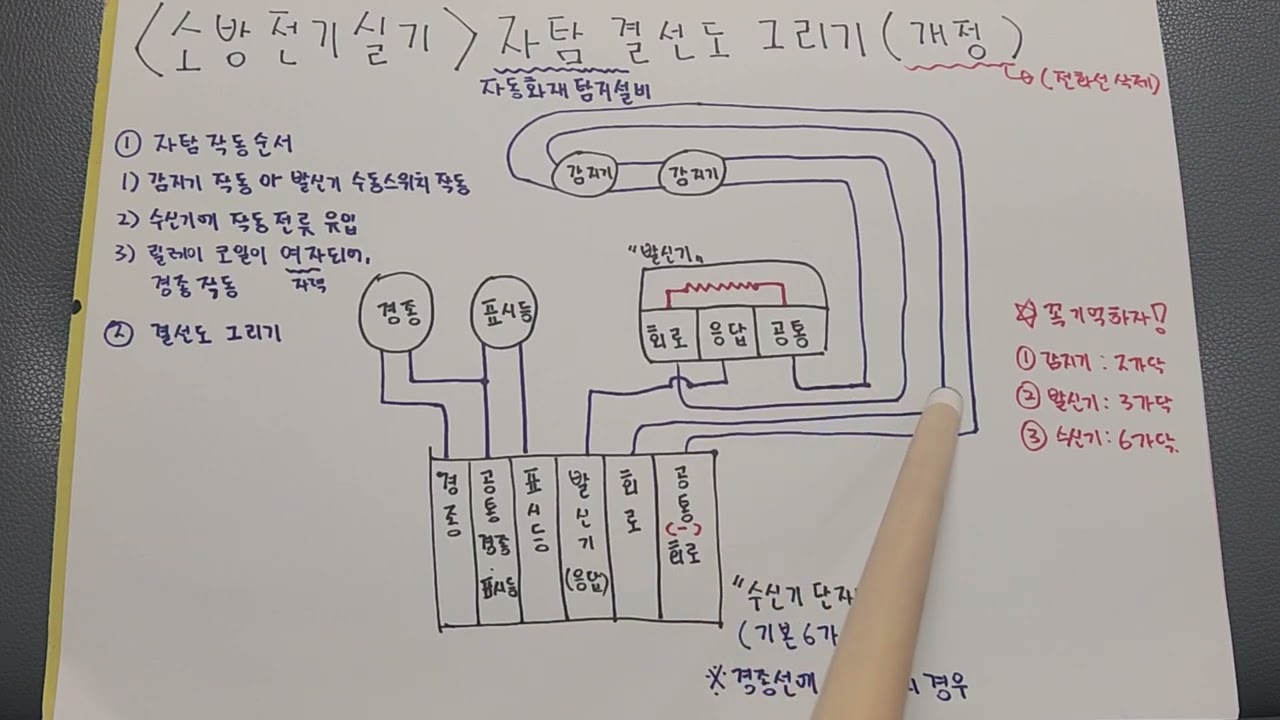 <소방전기실기> 자탐 결선도 그리기(개정)
(전화선 삭제)
자동화재탐지설비
① 자탐 작동순서
1) 감지기 작동 아 발신기 수동스위치 작동
2) 수신기에 작동전류 유입
3) 릴레이 코일이 여자되어,
경종작동 자력
② 결선도 그리기
감지기 감지기
"발신기"
회로 응답 공통
경종 표시등
경종
공통 경종·표시등
표시등
발신기 (응답)
회로
공통 (-) 회로
☆ 꼭기억하자!
① 감지기 : 2가닥
② 발신기 : 3가닥
③ 수신기 : 6가닥.
"수신기
(기본6가
※ 경종선에 경우